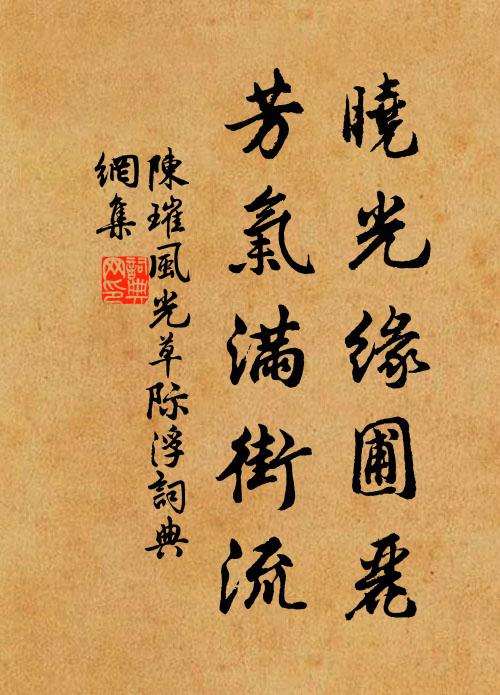 曉光緣圃麗
芳氣滿街流
陳璀風光草際浮詞典
網集
詞典
网印